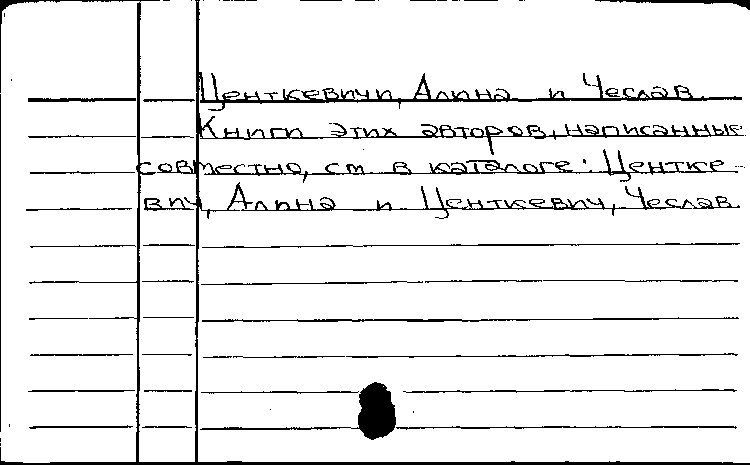 Центкевичи, Алина и Чеслав.
Книги этих авторов, написанные
совместно, см. в каталоге: Центке-
вич, Алина и Центкевич, Чеслав.